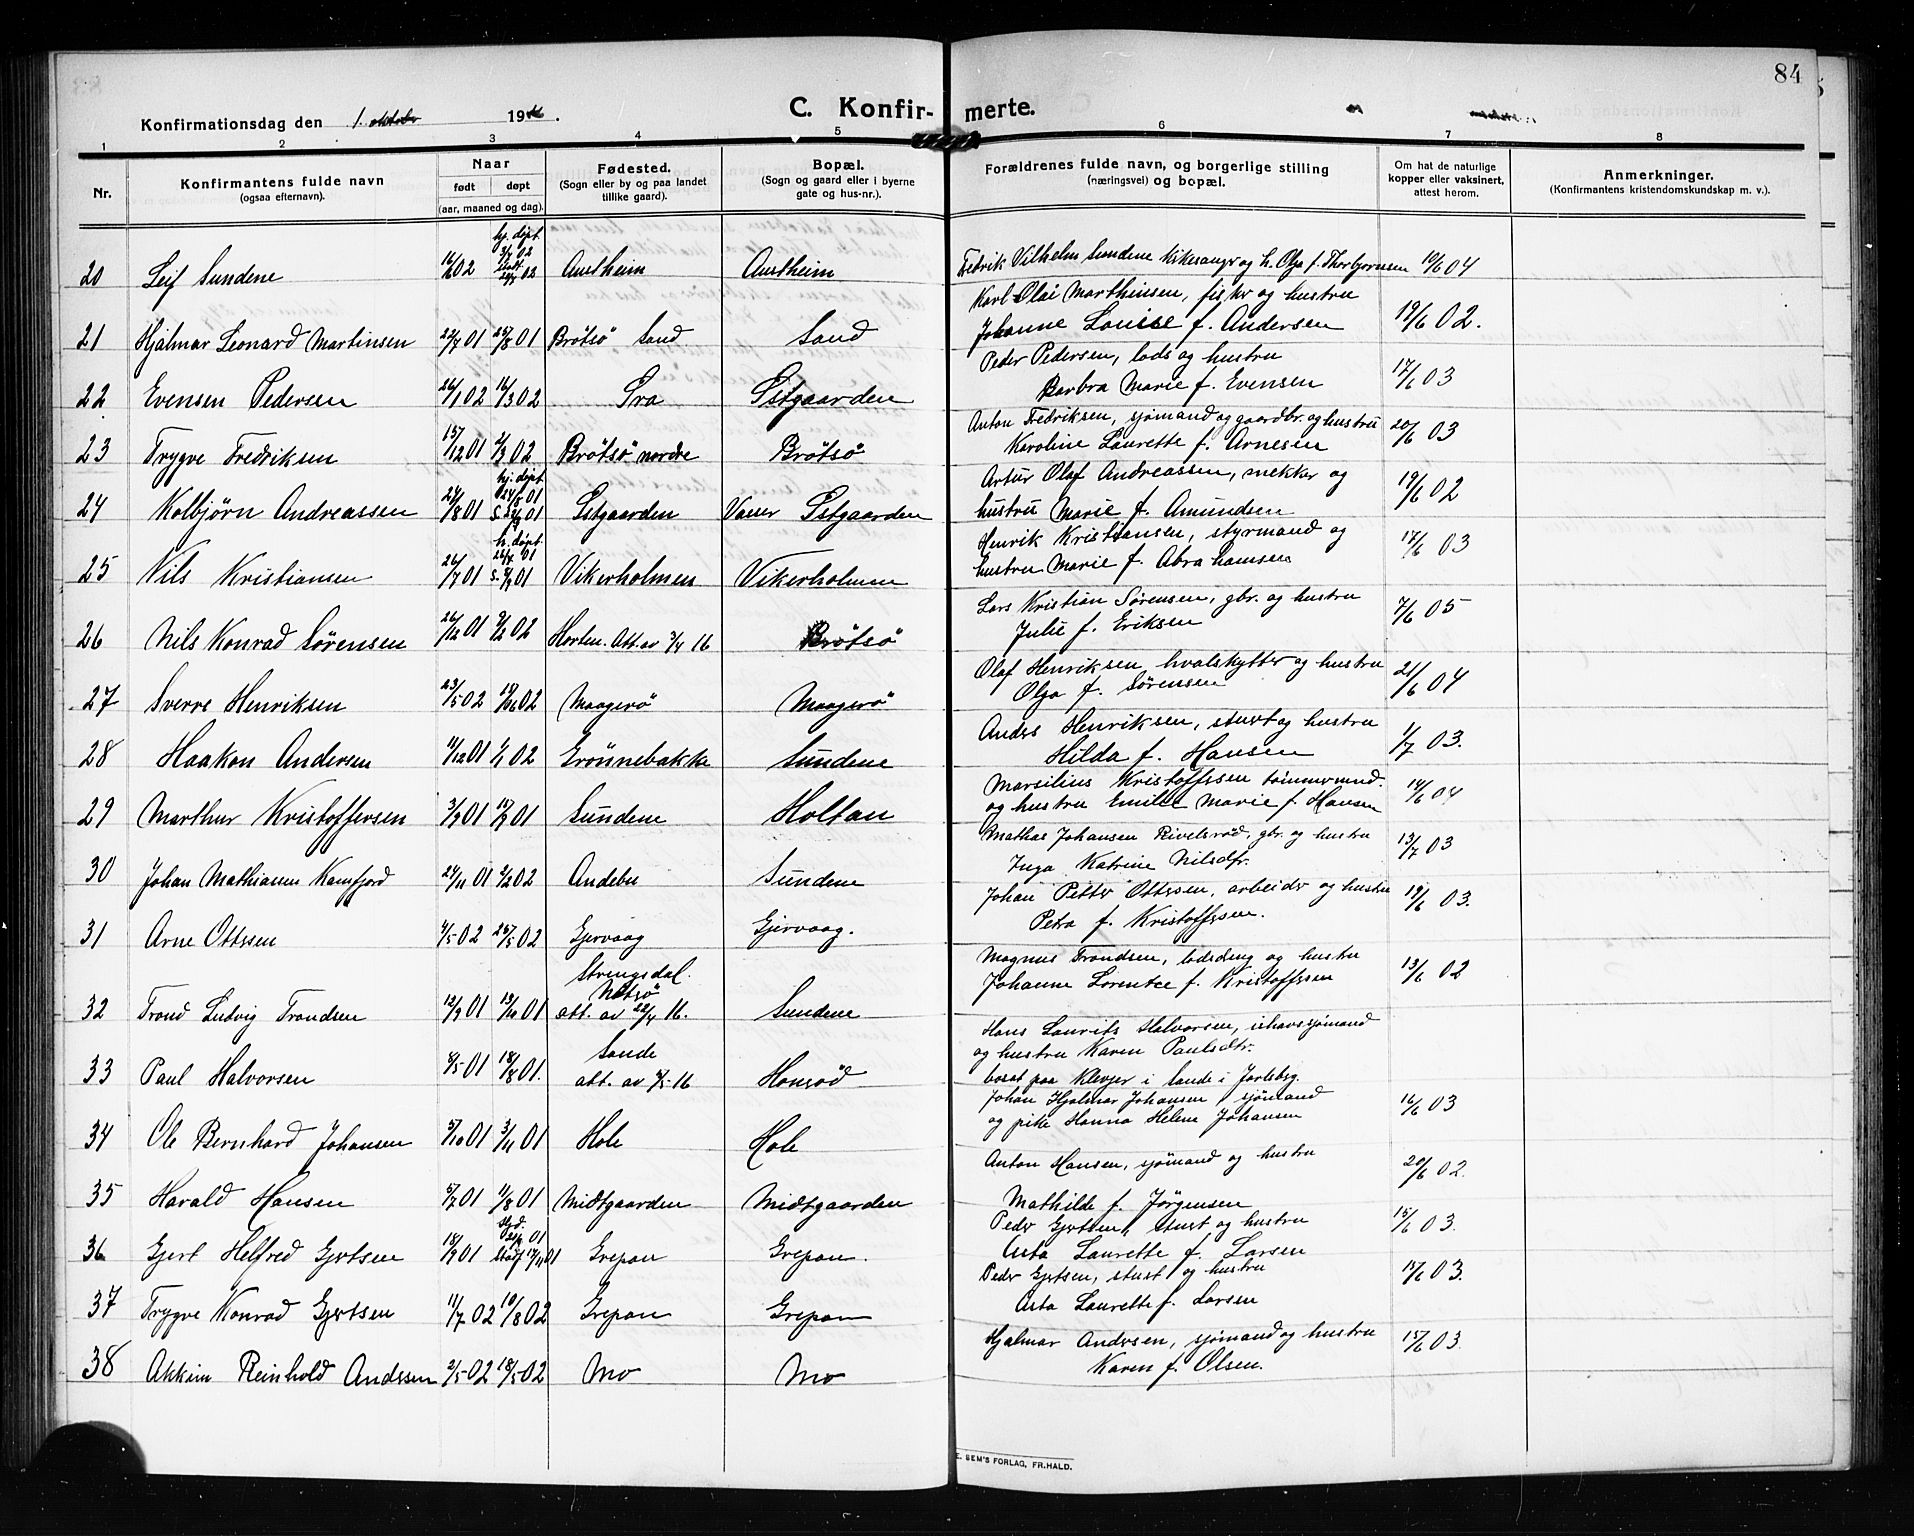 84
Konfirmationsdag den 1. oktober 1916.
C. Konfirmerte.
1 2 3 4 5 6 7 8
Nr.
Konfirmantens fulde navn
(ogsaa efternavn).
Naar
født døpt
(aar, maaned og dag).
Fødested.
(Sogn eller by og paa landet
tillike gaard).
Bopæl.
(Sogn og gaard eller i byerne
gate og hus-nr.).
Forældrenes fulde navn, og borgerlige stilling
(næringsvei) og bopæl.
Om hat de naturlige
kopper eller vaksinert,
attest herom.
Anmerkninger.
(Konfirmantens kristendomskundskap m. v.).
20 Leif Sundene 16/6 02 hj. døpt 3/7 02 Austheim Austheim Fredrik Vilhelm Sundene kirkesanger og h. Olga f. Thorbjørnsen 10/6 04
21 Hjalmar Leonard Martinsen 22/7 01 25/8 01 Brøtsø Sand Sand Karl Olai Marthinsen, fisker og hustru
Johanne Louise f. Andersen 19/6 02.
22 Evensen Pedersen 26/1 02 16/3 02 Sra Østgaarden Peder Pedersen, lods og hustru
Barbra Marie f. Evensen 17/6 03
23 Trygve Fredriksen 15/12 01 2/2 02 Brøtsø nordre Brøtsø Anton Fredriksen, sjømand og gaardbr. og hustru
Karoline Laurette f. Arnesen 20/6 03
24 Kolbjørn Andreassen 24/8 01 hj. døpt Østgaarden Vasser Østgaarden Artur Olaf Andreassen, snekker og
hustru Marie f. Amundsen 19/6 02
25 Nils Kristiansen 26/7 01 h. døpt 26/7 01 Vikerholmen Vikerholmen Henrik Kristiansen, styrmand og
hustru Marie f. Abrahamsen 17/6 03
26 Nils Konrad Sørensen 26/12 01 9/2 02 Horten. Att. av 3/4 16 Brøtsø Lars Kristian Sørensen, gbr. og hustru
Julie f. Eriksen 7/6 05
27 Sverre Henriksen 23/5 02 18/6 02 Maagerø Maagerø Olaf Henriksen, hvalskytter og hustru
Olga f. Sørensen 21/6 04
28 Haakon Andersen 11/12 01 1/1 02 Grønnebakke Sundene Anders Henriksen, stuert og hustru
Hilda f. Hansen 1/7 03.
29 Marthur Kristoffersen 3/9 01 Sundene Holtan Marsilius Kristoffersen tømmermand.
og hustru Emilie Marie f. Hansen 14/6 04
30 Johan Mathiasen Kamfjord 24/11 01 2/2 02 Andebu Sundene Mathias Johansen Rivelsrød, gbr. og hustru
Inga Katrine Nilsdtr. 13/7 03
31 Arne Ottesen 4/5 02 25/5 02 Gjervaag Gjervaag. Johan Petter Ottesen, arbeider og hustru
Petra f. Kristoffersen. 19/6 03.
32 Trond Ludvig Trondsen 12/9 01 13/10 01 Strengsdal. Nøtsø
att. av 22/4 16. Sundene Magnus Trondsen, lodsdreng og hustru
Johanne Lorentze f. Kristoffersen 13/6 02
33 Paul Halvorsen 8/5 01 18/8 01. Sande
att. av 8/5 16 Honsød Hans Laurits Halvorsen, ishavssjømand
og hustru Karen Paulsdtr.
bosat paa Klevjer i Sande i Jarlsberg.
34 Ole Bernhard Johansen 5/10 01 3/11 01 Hole Hole Johan Hjalmar Johansen sjømand
og pike Hanna Helene Johansen 16/6 03
35 Harald Hansen 5/7 01 11/8 01 Midtgaarden Midtgaarden Anton Hansen, sjømand og hustru
Mathilde f. Jørgensen 20/6 02.
36 Gjert Helfred Gjertsen 18/9 01 Stadf 17/11 01 Grepan Grepan. Peder Gjertsen, stuert og hustru
Asta Laurette f. Larsen 15/6 03.
37 Trygve Konrad Gjertsen 11/7 02 10/8 02 Grepan Grepan Peder Gjertsen, stuert og hustru
Asta Laurette f. Larsen 15/6 03.
38 Akkim Reinhold Anderssen 2/5 02 18/5 02 Mo Mo Hjalmar Andersen, sjømand og hustru
Karen f. Olsen. 15/6 03.
E. SEM'S FORLAG, FR.HALD.